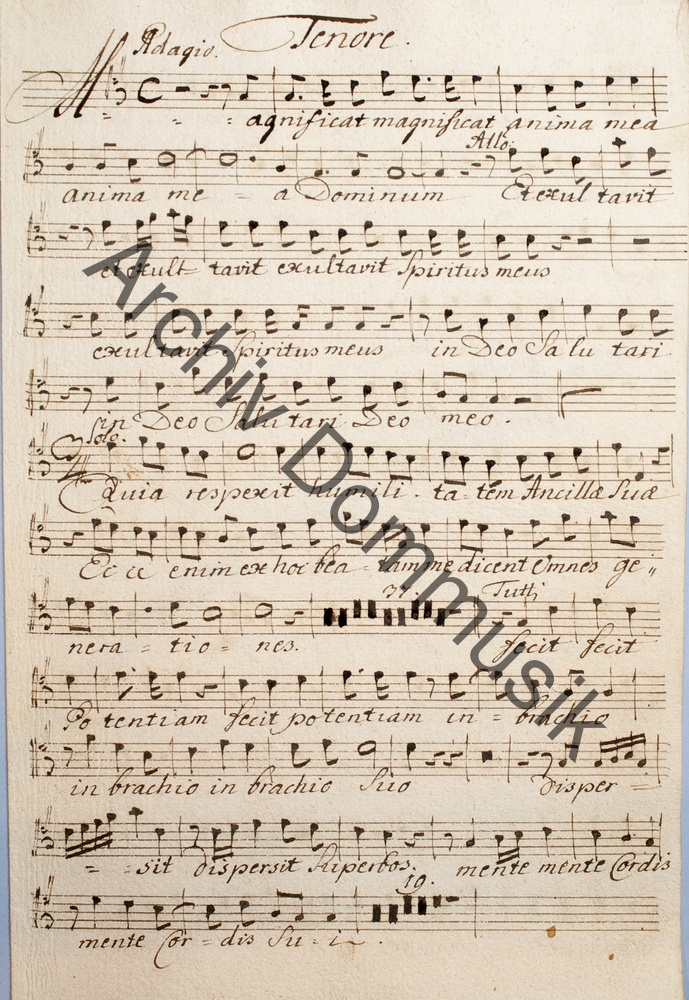 Adagio. Tenore.
Magnificat magnificat anima mea
Allo:
anima me - a Dominum Et exul tavit
et exult tavit exultavit Spiritus meus
exultavit Spiritus meus in Deo Salu tari
in Deo Salutari Deo meo.
Solo.
Quia respexit humili - ta - tem Ancillæ Suæ
Ecce enim ex hoc bea - tam me dicent omnes ge„
37. Tutti
nera - tio - nes. fecit fecit
Potentiam fecit potentiam in - brachio
in brachio in brachio Suo Disper =
= - sit dispersit Superbos. mente mente Cordis
19.
mente Cor - dis Su - i.
Archiv Dommusik